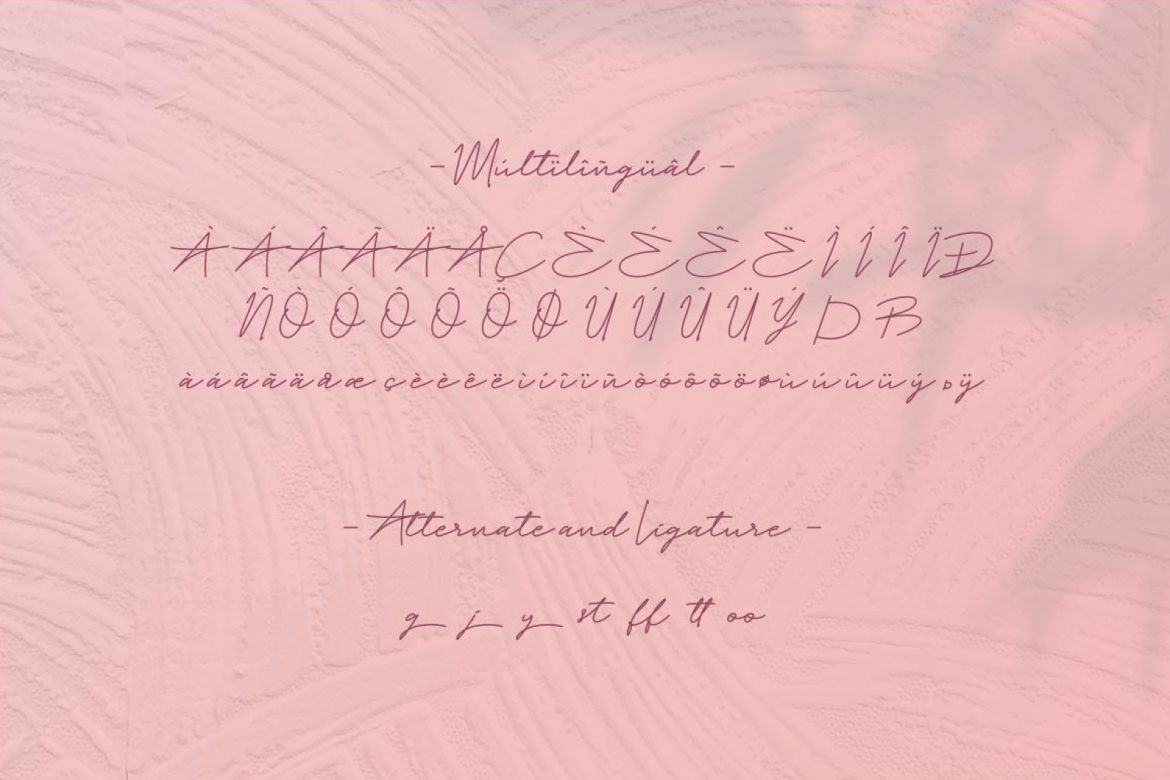 - Múltïlîñgüâl -
ÀÁÂÃÄÅÇÈÉÊËÌÍÎÏÐ
ÑÒÓÔÕÖØÙÚÛÜÝÞß
àáâãäåæçèéêëìíîïñòóôõöøùúûüýþÿ
- Alternate and Ligature -
g j y st ff tt oo